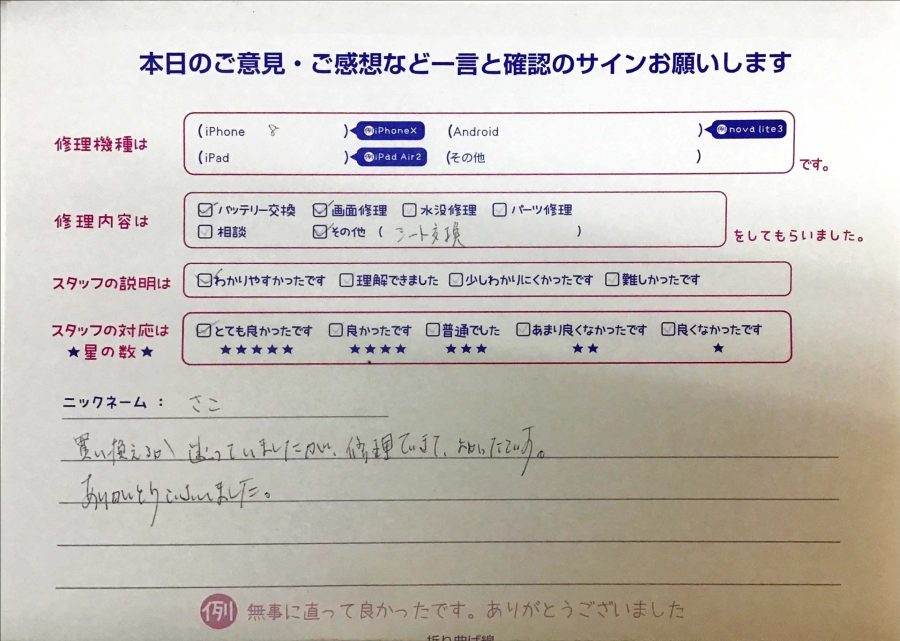 本日のご意見・ご感想など一言と確認のサインお願いします
修理機種は (iPhone 8 ) 例 iPhoneX (Android ) 例 nova lite3
(iPad ) 例 iPad Air2 (その他 ) です。
修理内容は バッテリー交換 画面修理 水没修理 パーツ修理
相談 その他 ( シート交換 ) をしてもらいました。
スタッフの説明は わかりやすかったです 理解できました 少しわかりにくかったです 難しかったです
スタッフの対応は とても良かったです 良かったです 普通でした あまり良くなかったです 良くなかったです
★星の数★ ★★★★★ ★★★★ ★★★ ★★ ★
ニックネーム : さこ
買い換えるか 迷っていましたが、修理できて、よかったです。
ありがとうございました。
例 無事に直って良かったです。ありがとうございました
折り曲げ線